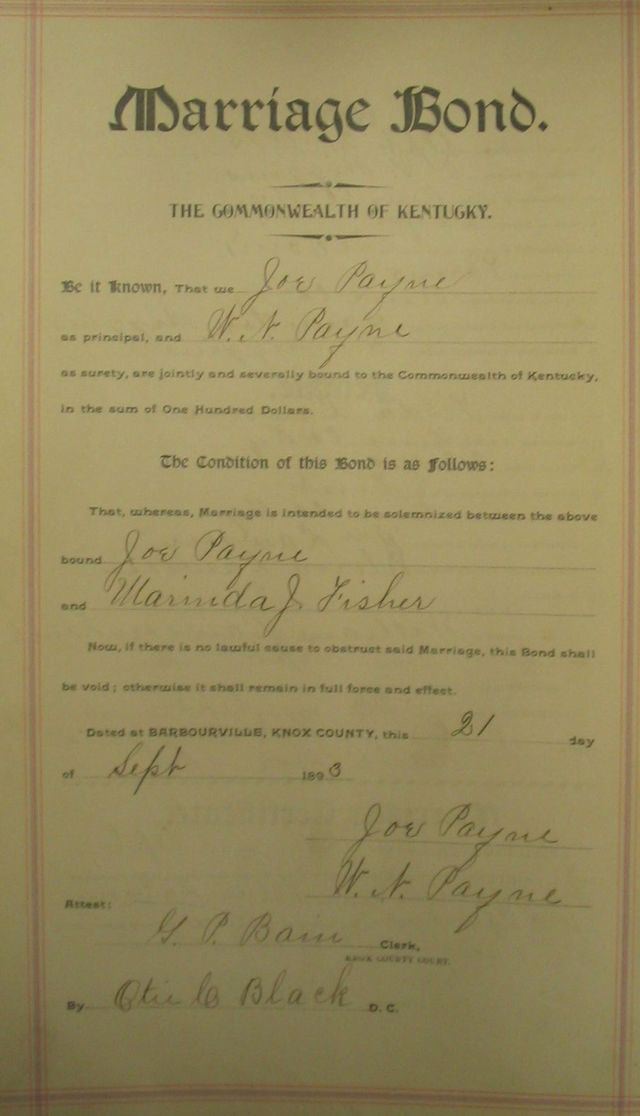 Marriage Bond.
THE COMMONWEALTH OF KENTUCKY.
Be it Known, That we Joe Payne
as principal, and W. N. Payne
as surety, are jointly and severally bound to the Commonwealth of Kentucky,
in the sum of One Hundred Dollars.
The Condition of this Bond is as Follows:
That, whereas, Marriage is intended to be solemnized between the above
bound Joe Payne
and Marinda J Fisher
Now, if there is no lawful cause to obstruct said Marriage, this Bond shall
be void; otherwise it shall remain in full force and effect.
Dated at BARBOURVILLE, KNOX COUNTY, this 21 day
of Sept 1893
Joe Payne
W. N. Payne
Attest:
G. P. Bain Clerk,
KNOX COUNTY COURT.
By Black D. C.